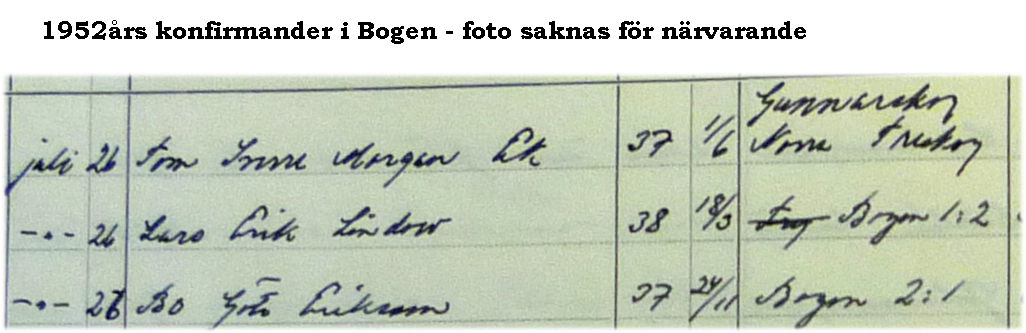 1952års konfirmander i Bogen - foto saknas för närvarande
Gunnarskog
juli 26 Tom Sverre Morgan Ek 37 1/6 Norra Treskog
-"- 26 Lars Erik Lindow 38 18/3 Bogen 1:2
-"- 26 Bo Göte Eriksson 37 24/11 Bogen 2:1